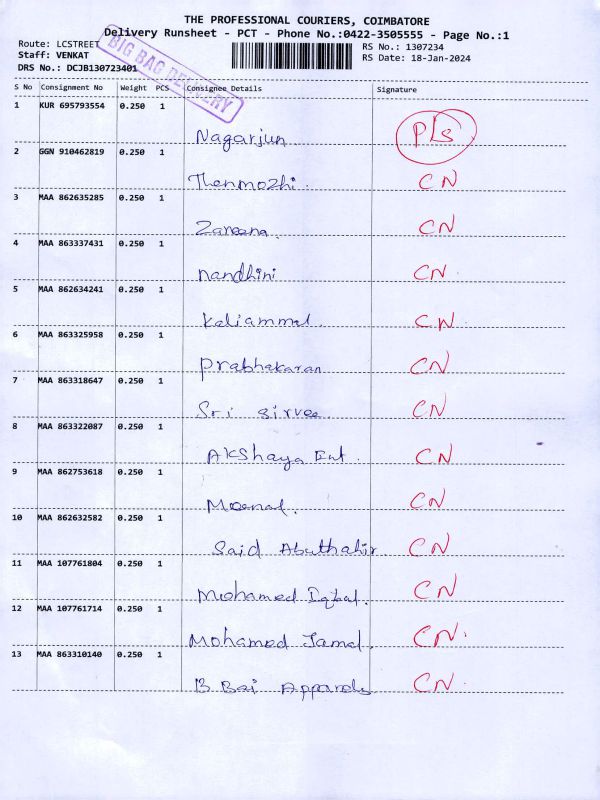 THE PROFESSIONAL COURIERS, COIMBATORE
Delivery Runsheet - PCT - Phone No.:0422-3505555 - Page No.:1
Route: LCSTREET
Staff: VENKAT
DRS No.: DCJB130723401
BIG BAG DELIVERY
RS No.: 1307234
RS Date: 18-Jan-2024
S No Consignment No Weight PCS Consignee Details Signature
1 KUR 695793554 0.250 1 Nagarjun Pls
2 GGN 910462819 0.250 1 Thenmozhi. CN
3 MAA 862635285 0.250 1 Zareena. CN
4 MAA 863337431 0.250 1 nandhini CN
5 MAA 862634241 0.250 1 Kaliammal CN
6 MAA 863325958 0.250 1 Prabhakaran CN
7 MAA 863318647 0.250 1 Sri sirvee CN
8 MAA 863322087 0.250 1 Akshaya Ent. CN
9 MAA 862753618 0.250 1 Meenal. CN
10 MAA 862632582 0.250 1 Said Abuthahir CN
11 MAA 107761804 0.250 1 Mohamed Iqbal. CN
12 MAA 107761714 0.250 1 Mohamed Jamal. CN.
13 MAA 863310140 0.250 1 B Bai Apparels CN